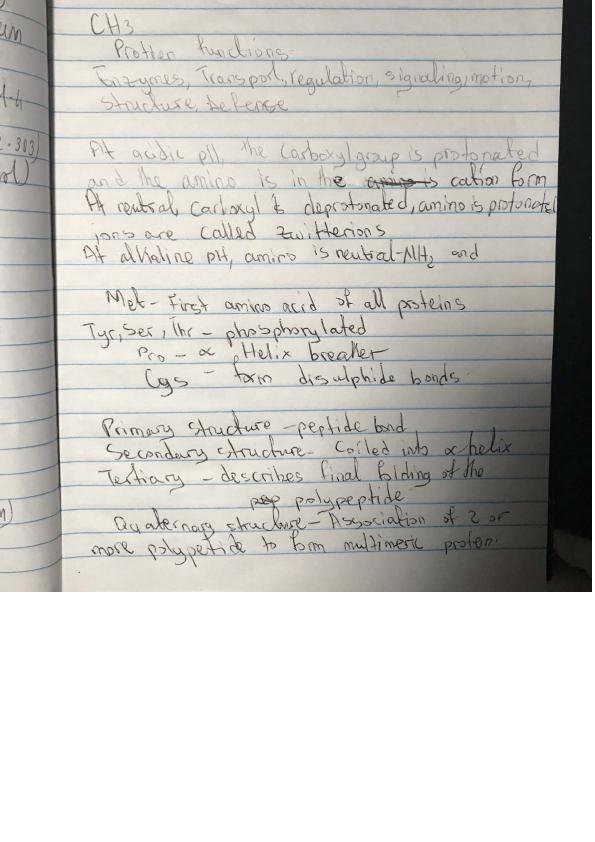 um
CH3
Protien functions.
Enzymes, Transport, regulation, signaling, motion,
structure, defense
2.303)
At acidic pH, the carboxyl group is protonated
and the amino is in the amino is cation form
At neutral, carboxyl is deprotonated, amino is protonated
ions are called zwitterions
At alkaline pH, amino is neutral-NH2 and
Met - First amino acid of all proteins
Tyr, Ser, Thr - phosphorylated
Pro - α Helix breaker
Cys - form disulphide bonds.
Primary structure - peptide bond
Secondary structure - Coiled into α helix
Tertiary - describes final folding of the
polypeptide
Quaternary structure - Association of 2 or
more polypetide to form multimeric protein.